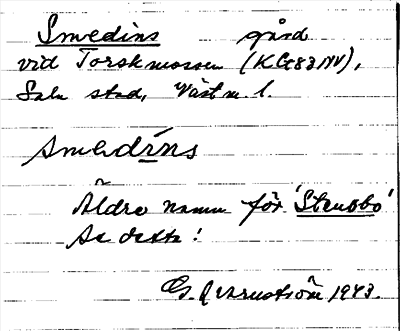 Smedins gård
vid Torskmossen (KG83NV),
Sala stad, Västm. l.
Smedins
Äldre namn för 'Stensbo'
Se detta!
G. 1943.